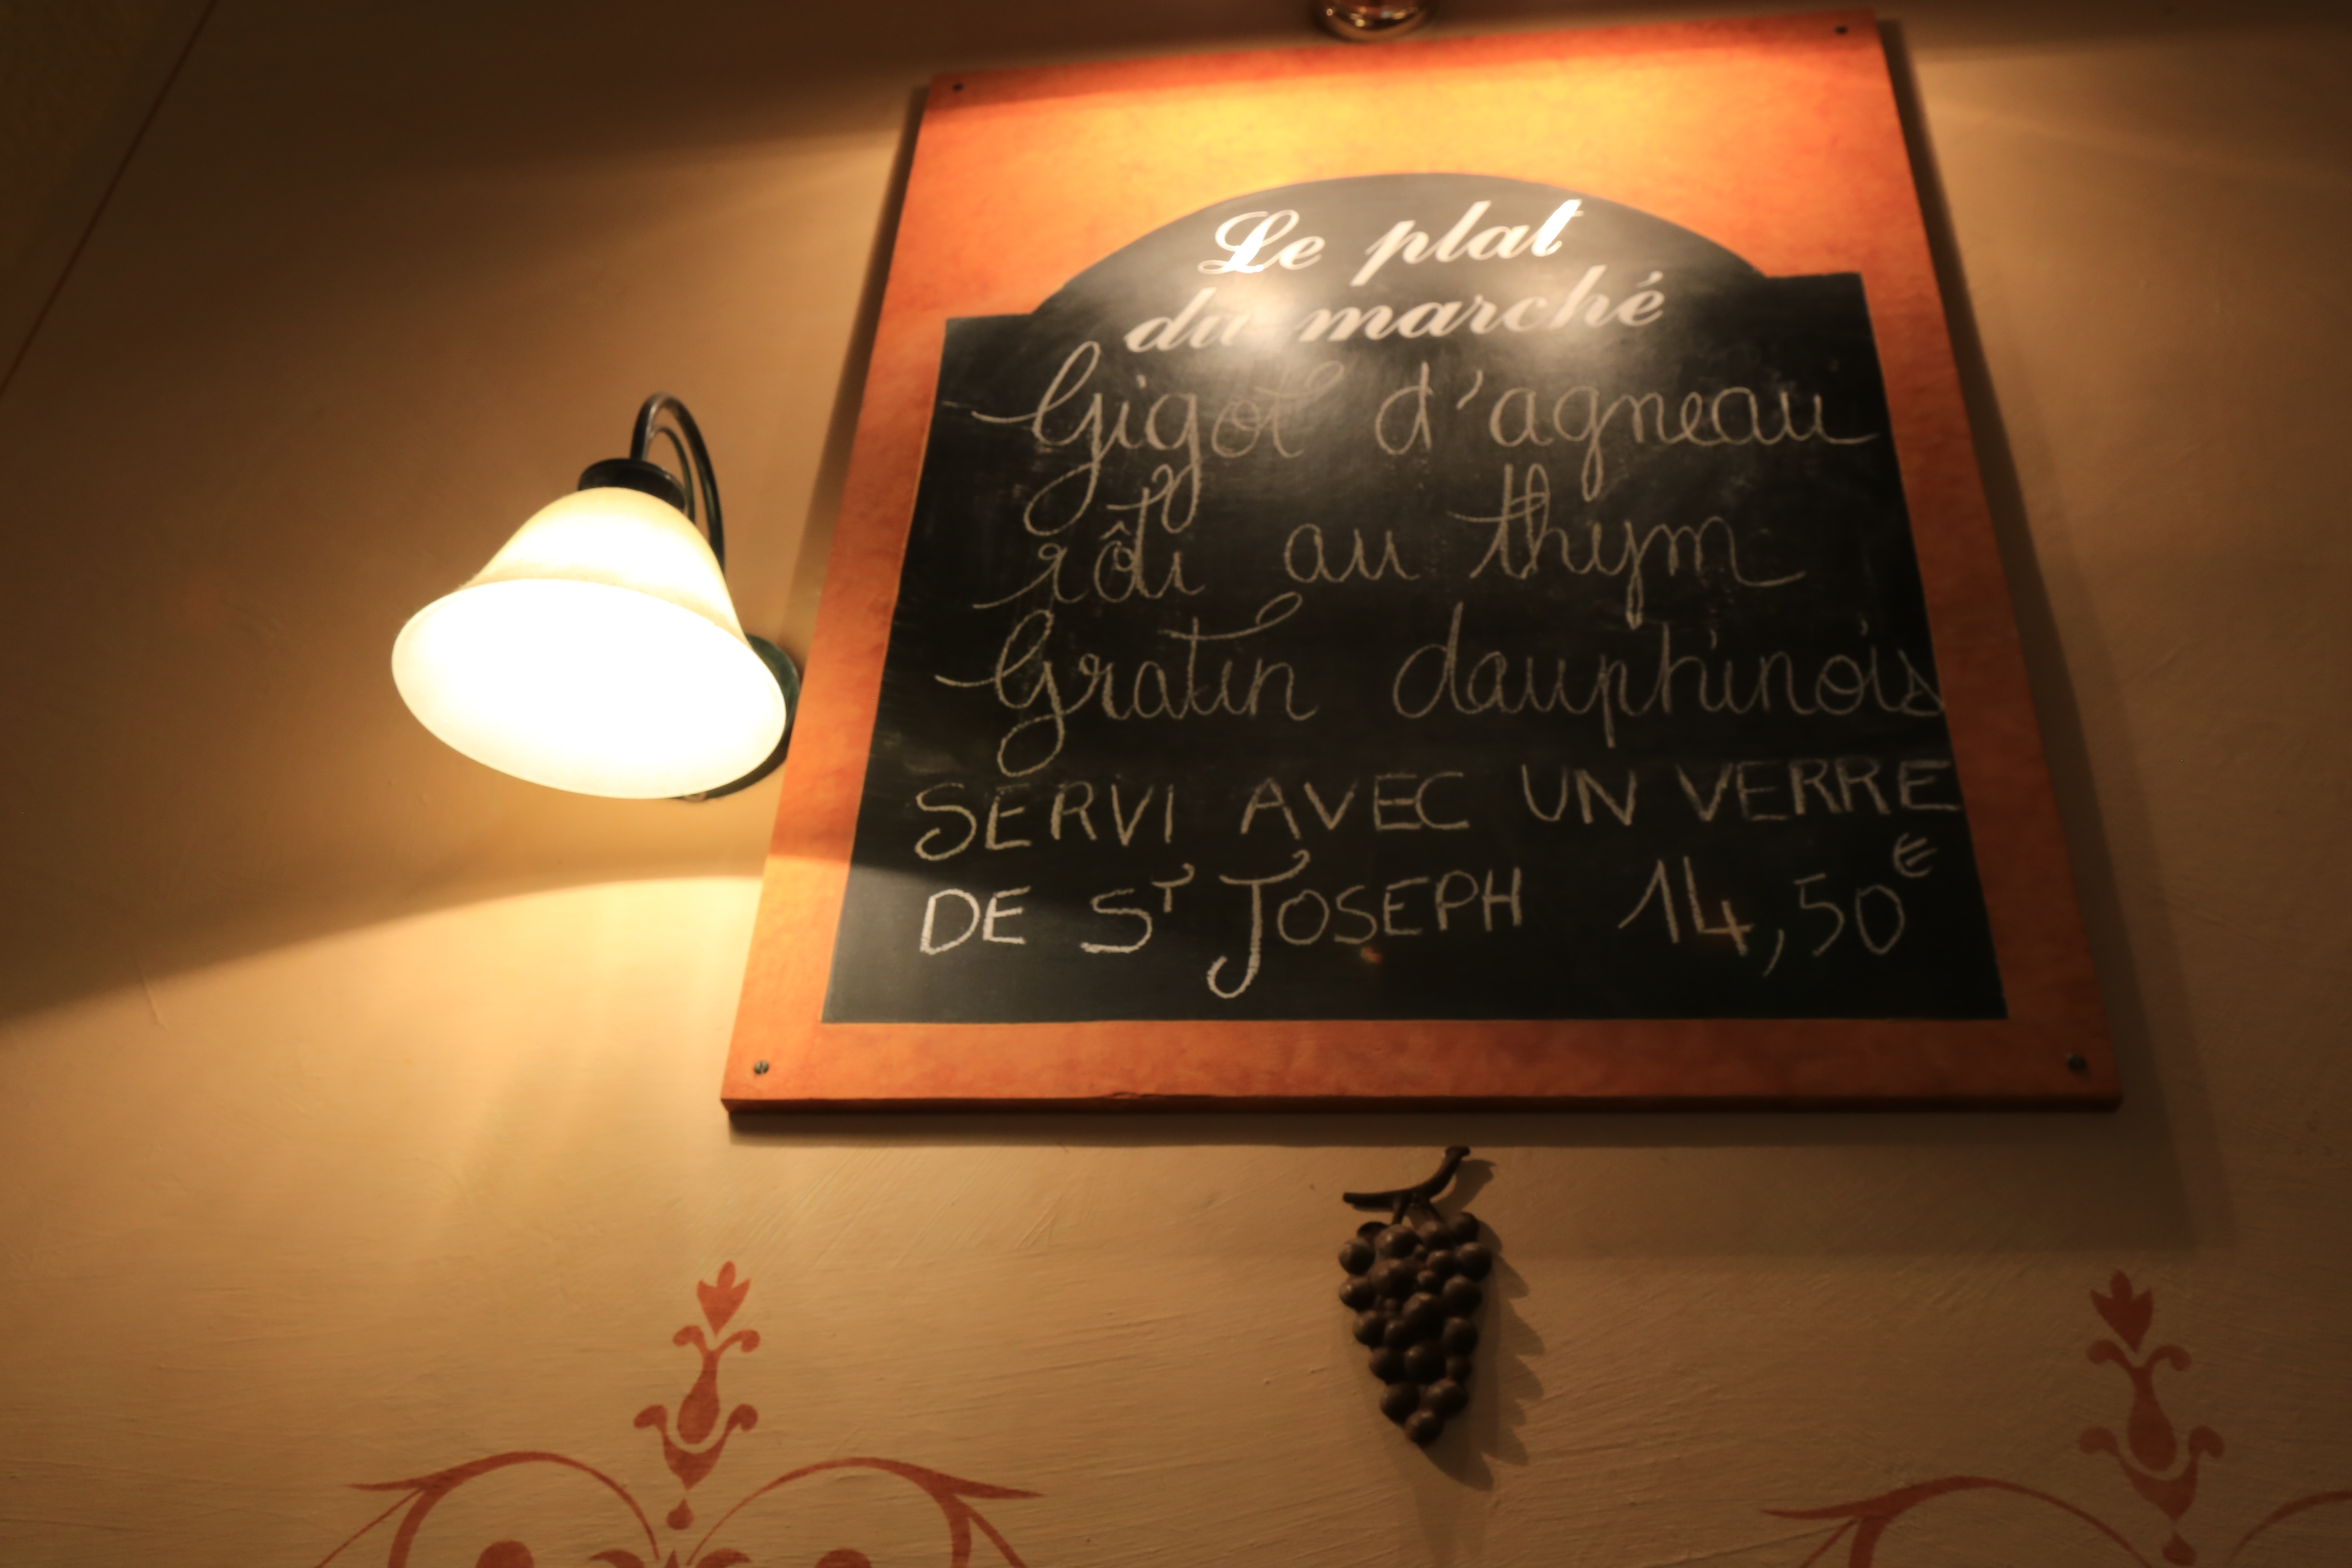 Le plat
du marché
Gigot d'agneau
rôti au thym
Gratin dauphinois
SERVI AVEC UN VERRE
DE ST JOSEPH 14,50€